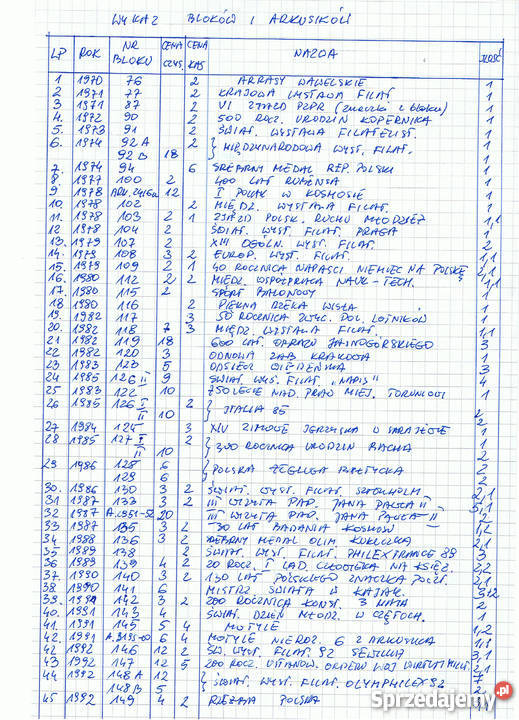 WYKAZ BLOKÓW I ARKUSIKÓW
LP ROK NR BLOKU CENA CZYS. CENA KAS NAZWA ILOŚĆ
1 1970 76 2 ARRASY WAWELSKIE 1
2 1971 77 2 KRAJOWA WYSTAWA FILAT 1
3 1971 87 2 VI ZJAZD PZPR (znaczki z bloku) 1
4. 1972 90 2 500 ROCZ. URODZIN KOPERNIKA 1
5. 1973 91 2 ŚWIAT. WYSTAWA FILATELIST. 1
6. 1974 92 A 2 } MIĘDZYNARODOWA WYST. FILAT. 1
92 B 18
7. 1974 94 6 SREBRNY MEDAL REP. POLSKI 1
8 1977 100 2 400 LAT RUBENSA 1
9 1978 12 I POLAK W KOSMOSIE 1
10. 1978 102 2 MIĘDZ. WYSTAWA FILAT. 1
11. 1978 103 2 1 ZJAZD POLSK. RUCHU MŁODZIEŻ 1,1
12 1978 104 2 ŚWIAT. WYST. FILAT. PRAGA 1
13. 1979 107 2 XIII OGÓLN. WYST. FILAT. 2
14. 1979 108 3 2 EUROP. WYST. FILAT.
15. 1979 109 2 1 40 ROCZNICA NAPAŚCI NIEMIEC NA POLSKĘ 2,1
16. 1980 112 2 2 MIĘDZ. WSPÓŁPRACA NAUK-TECH.
17. 1980 115 2 SPORT BALONOWY 1
18 1980 116 2 PIĘKNA RZEKA WISŁA 1
19. 1982 117 3 50 ROCZNICA ZWYC. POL. LOTNIKÓW 1
20. 1982 118 7 3 MIĘDZ. WYSTAWA FILAT. 1,1
21 1982 119 18 600 LAT OBRAZU JASNOGÓRSKIEGO 3
22 1982 120 3 ODNOWA ZAB. KRAKOWA 1
23 1983 123 5 ODSIECZ WIEDEŃSKA 3
24 1985 126 II 9 ŚWIAT. WYS. FILAT. "NAPIS" 4
25 1983 122 10 750 LECIE NAD. PRAW MIEJ. TORUNIOWI 1
26 1985 126 I 2 } ITALIA 85
II 10 2
27 1984 124 3 XIV ZIMOWE IGRZYSKA W SARAJEWIE 1
28 1985 127 I 2 } 300 ROCZNICA URODZIN BACHA 1
II 10 2
29 1986 128 6 } POLSKA ŻEGLUGA BAŁTYCKA 2
129 6 2
30. 1986 130 3 2 ŚWIAT. WYST. FILAT. SZTOKHOLM 2,1
31 1987 133 3 2 III WIZYTA PAP. JANA PAWŁA II 5,1
32 1987 20 III WIZYTA PAP. JANA PAWŁA II 2
33 1987 135 3 2 30 LAT BADANIA KOSMOSU 1,2
34 1988 136 3 2 SREBRNY MEDAL OLIM KUKUCZKA 2,1
35 1989 138 2 ŚWIAT. WYST. FILAT. PHILEXFRANCE 89 3
36 1989 139 4 2 20 ROCZ. I LĄD. CZŁOWIEKA NA KSIĘŻ. 2,2
37. 1990 140 3 2 130 LAT POLSKIEGO ZNACZKA POCZT. 2,1
38. 1990 141 6 MISTRZ. ŚWIATA W KAJAK.
39. 1991 142 3 2 200 ROCZNICA KONST. 3 MAJA 2
40. 1991 143 4 ŚWIAT. DZIEŃ MŁODZ. W CZĘSTOCH. 1
41. 1991 145 5 4 MOTYLE 1,2
42. 1991 6 4 MOTYLE NIEROZ. 6 Z ARKUSIKA 1
42 1992 146 12 2 ŚW. WYST. FILAT. 92 SEWILLA 3,1
43 1992 147 12 5 200 ROCZ. USTANOW. ORDERU WOJ. VIRTUTI MILIT. 2,1
44 1992 148 A 12 } ŚWIAT. WYST. FILAT. OLYMPHILEX 92 7
148 B 5 2
45 1992 149 4 2 POLSKA
Sprzedajemy.pl